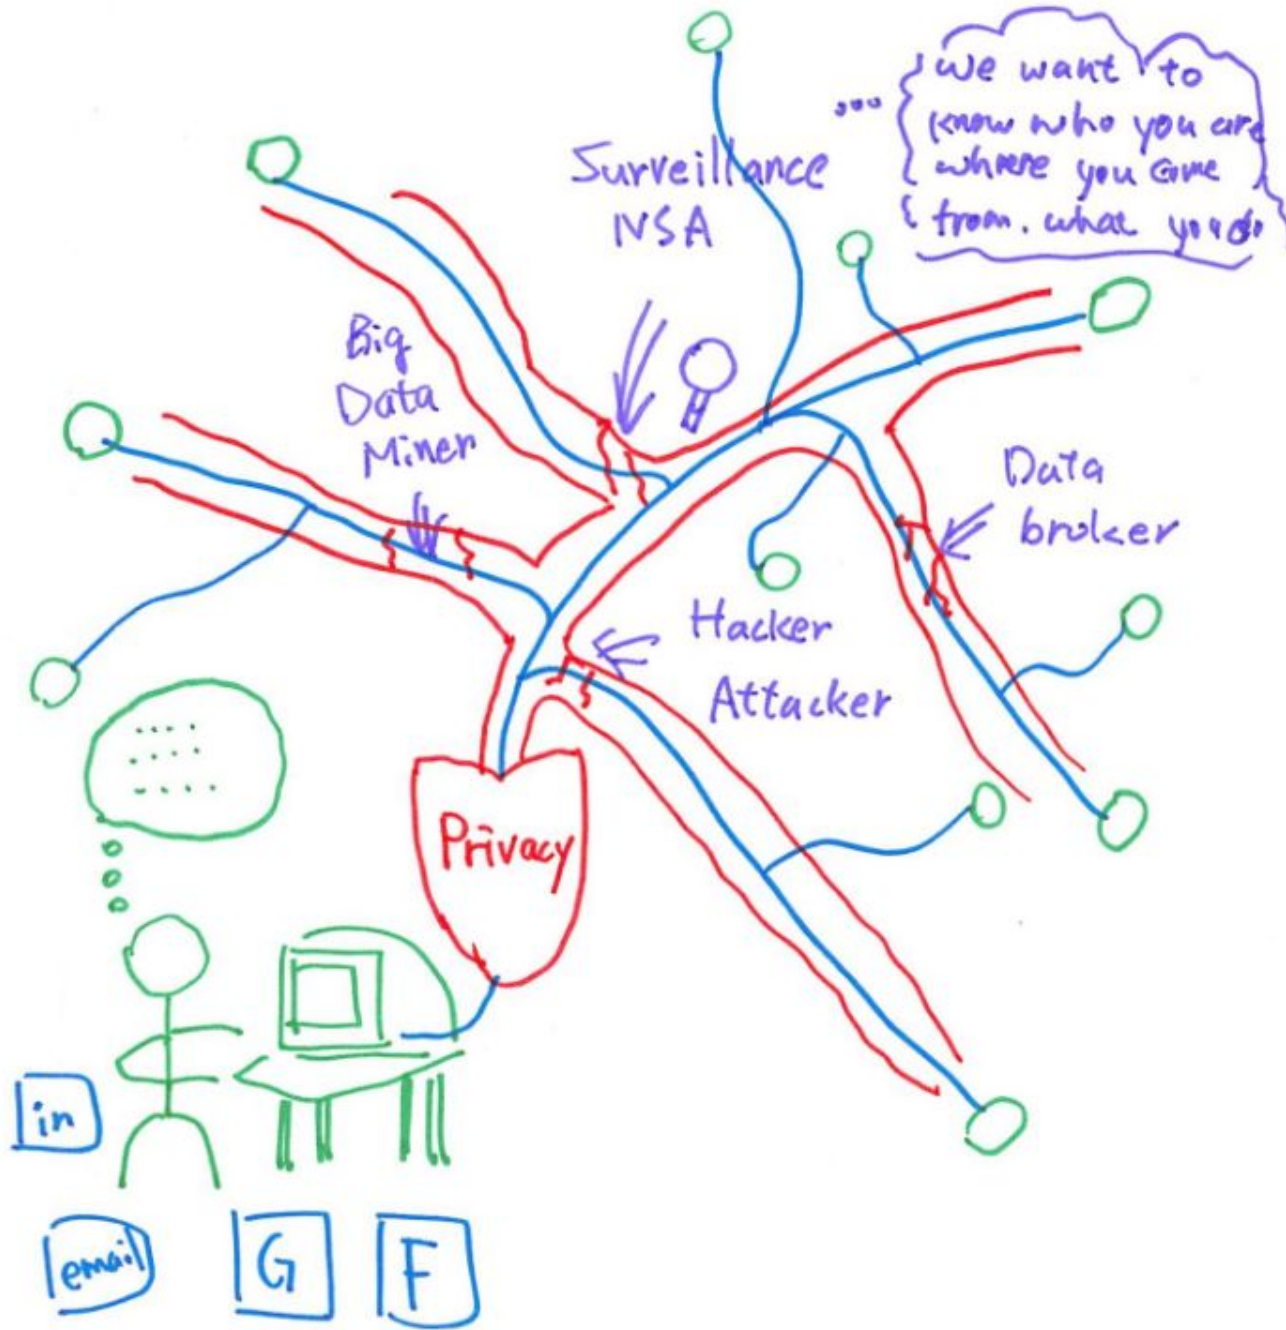 we want to
know who you are
where you came
from. what you do
Surveillance
NSA
Big
Data
Miner
Data
broker
Hacker
Attacker
Privacy
in
email
G
F